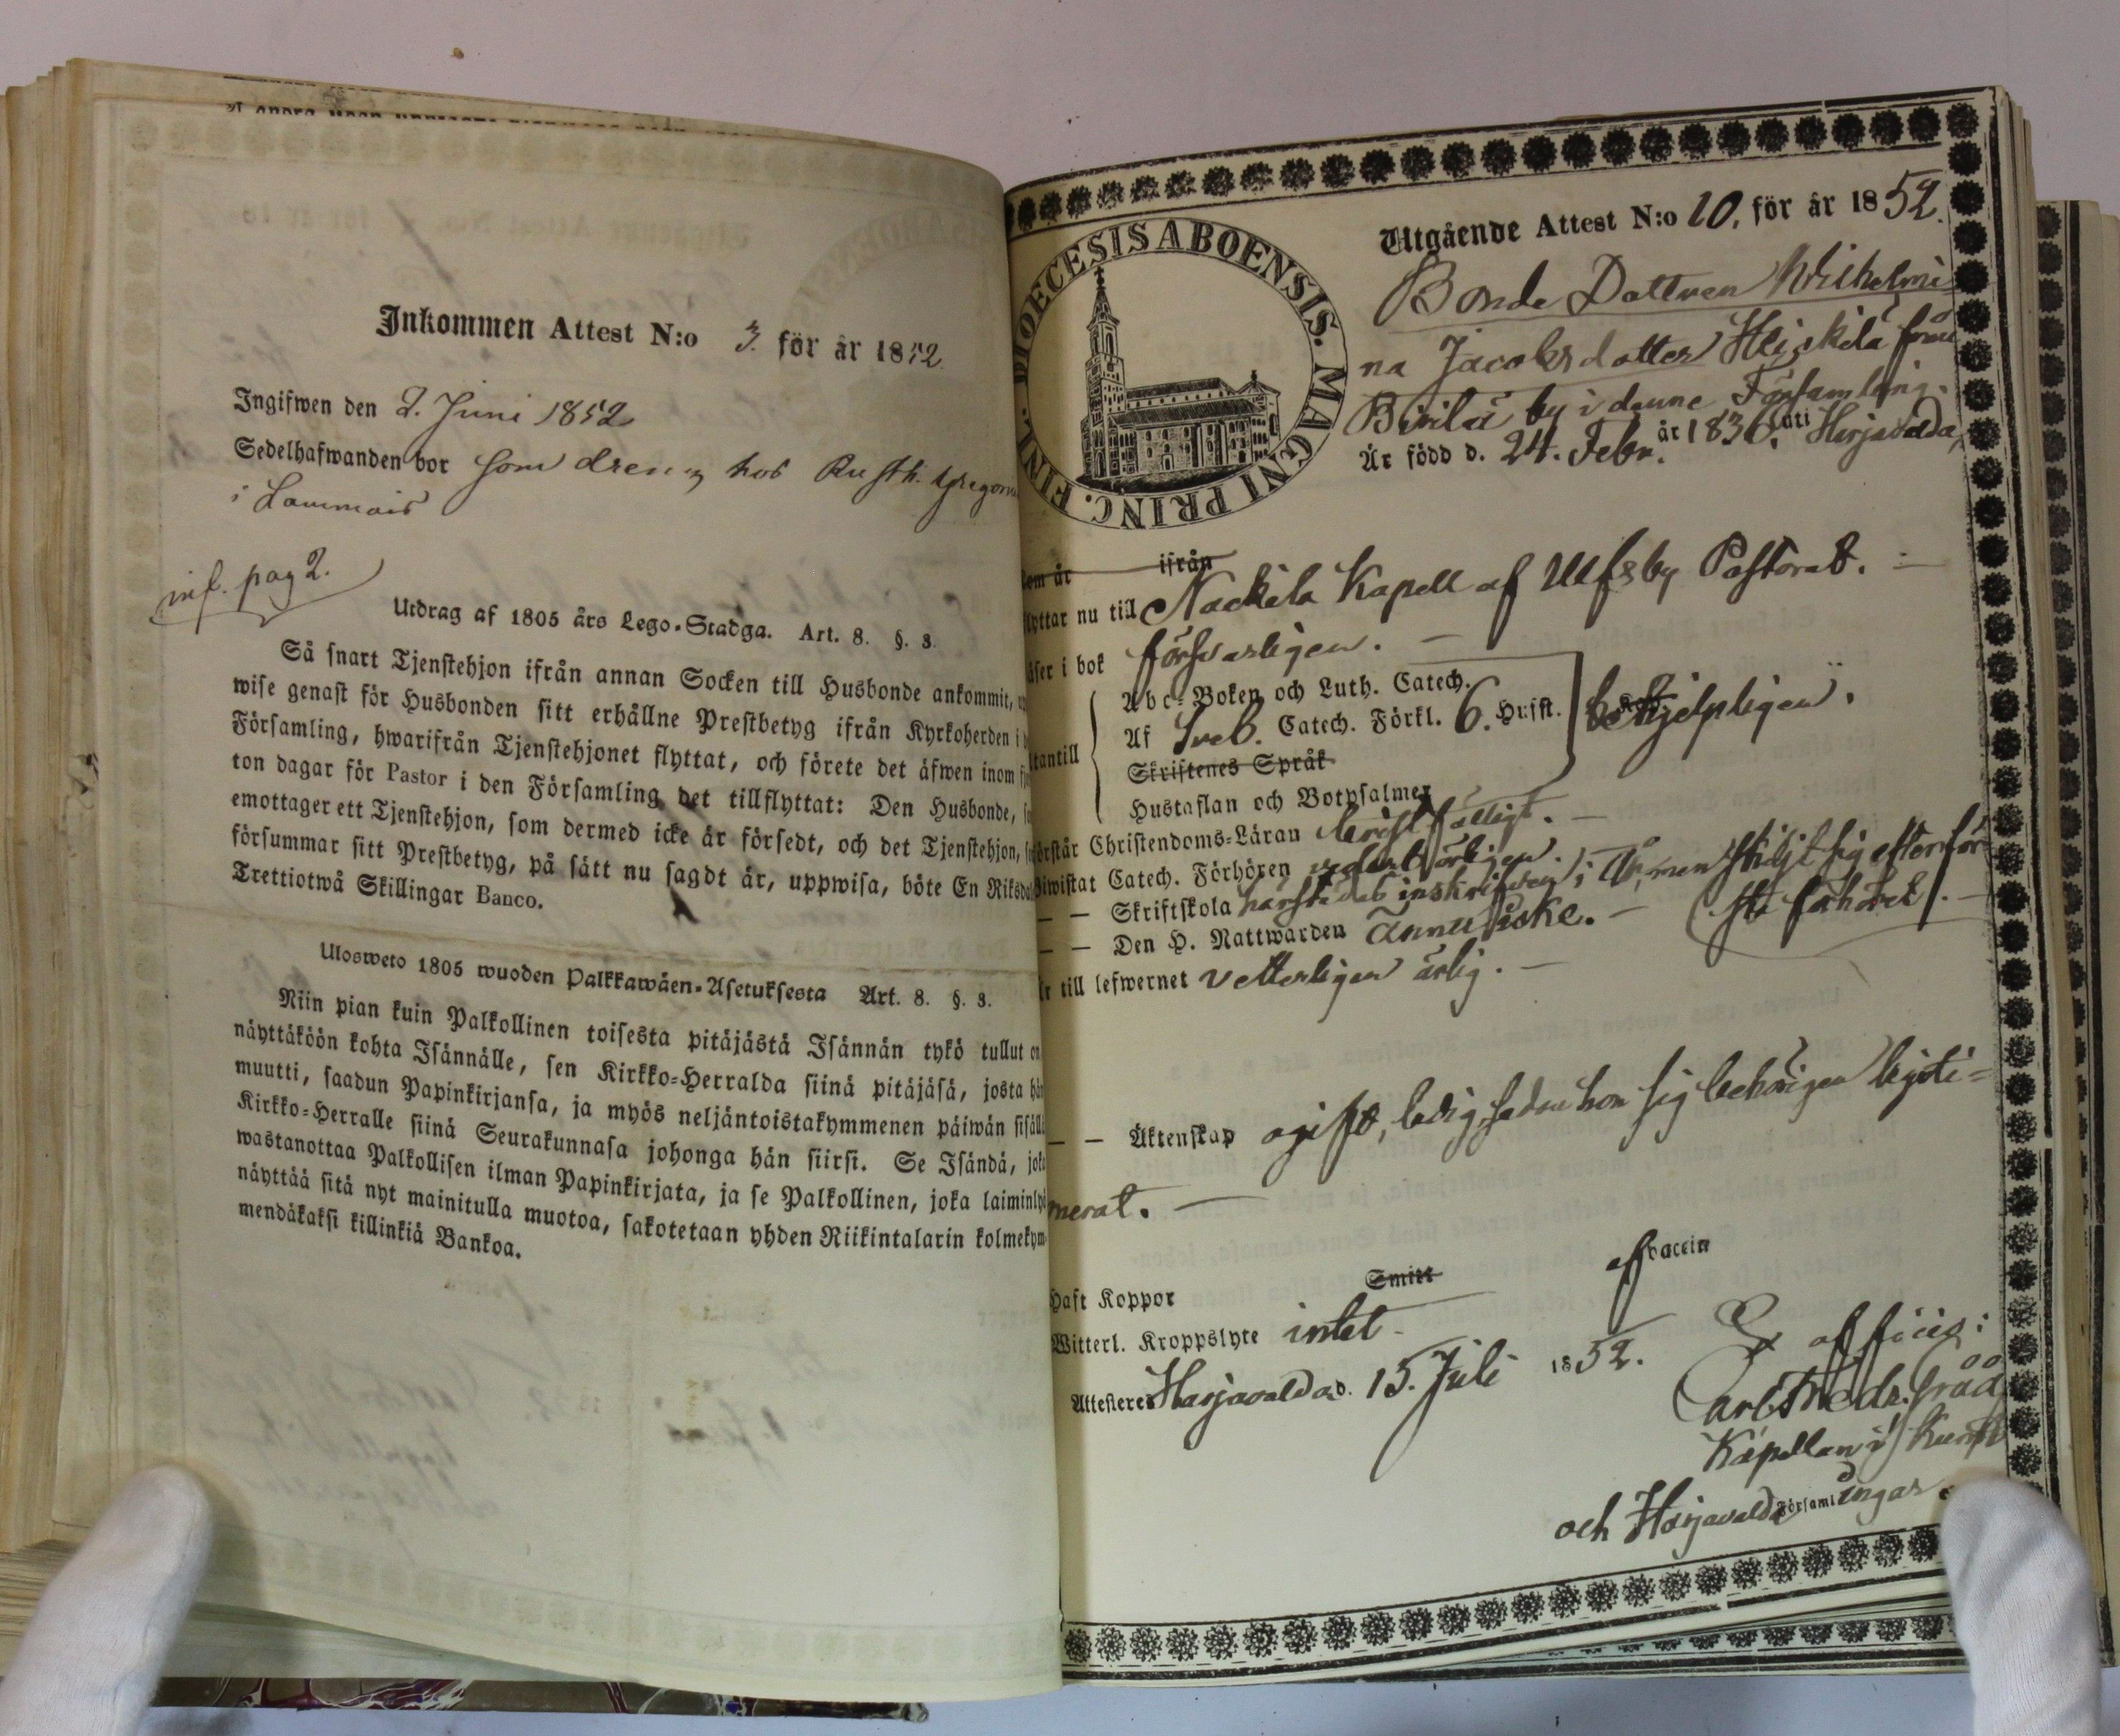 Inkommen Attest N:o 3. för år 1852
Ingifwen den 2. Juni 1852
Sedelhafwanden bor som dreng hos Rusth.
i Lammais
inf. pag 2.
Utdrag af 1805 års Lego-Stadga. Art. 8. §. 3.
Så snart Tjenstehjon ifrån annan Socken till Husbonde ankommit,
wise genast för Husbonden sitt erhållne Prestbetyg ifrån Kyrkoherden i
Församling, hwarifrån Tjenstehjonet flyttat, och förete det äfwen inom
ton dagar för Pastor i den Församling det tillflyttat: Den Husbonde,
emottager ett Tjenstehjon, som dermed icke är försedt, och det Tjenstehjon,
försummar sitt Prestbetyg, på sätt nu sagdt är, uppwisa, böte En Riksda
Trettiotwå Skillingar Banco.
Ulosweto 1805 wuoden Palkkawäen-Asetuksesta Art. 8. §. 3.
Niin pian kuin Palkollinen toisesta pitäjästä Isännän tykö tullut on
näyttäköön kohta Isännälle, sen Kirkko-Herralda siinä pitäjäsä, josta hän
muutti, saadun Papinkirjansa, ja myös neljäntoistakymmenen päiwän sisäll
Kirkko-Herralle siinä Seurakunnasa johonga hän siirsi. Se Isändä, joka
wastanottaa Palkollisen ilman Papinkirjata, ja se Palkollinen, joka laiminly
näyttää sitä nyt mainitulla muotoa, sakotetaan yhden Riikintalarin kolmekym
mendäkaksi killinkiä Bankoa.
DIOECESIS ABOENSIS. MAGNI PRINC. FINL.
Utgående Attest N:o 10. för år 1852.
Bonde Dottren Wilhelmi
na Jacobsdotter Heiskilä från
by i denne Församling.
Är född d. 24. Febr. år 1836. uti Harjavalda
som är ifrån
flyttar nu till Nackila Kapell af Ulfsby Pastorat.
läser i bok försvarligen.
Abc-Boken och Luth. Catech.
Af Sveb. Catech. Förkl. 6. Hufst.
utantill behjelpligen.
Skriftenes Språk
Hustaflan och Botpsalmer
förstår Christendoms-Läran bristfälligt.
Biwistat Catech. Förhören
— — Skriftskola härstädes inskrifven i År, men skiljt sig efter för
— — Den H. Nattwarden ännu icke. — sta förhöret. —
Är till lefwernet vetterligen ärlig. —
— — Äktenskap ogift, ledig, sedan hon sig behörigen legiti=
merat. —
Haft Koppor Smitt af vaccin
Witterl. Kroppslyte intet
Attesteres Harjavalda d. 15. Juli 1852. Ex officio:
Carl Fredr.
Kapellan i
och Harjavalda Församlingar